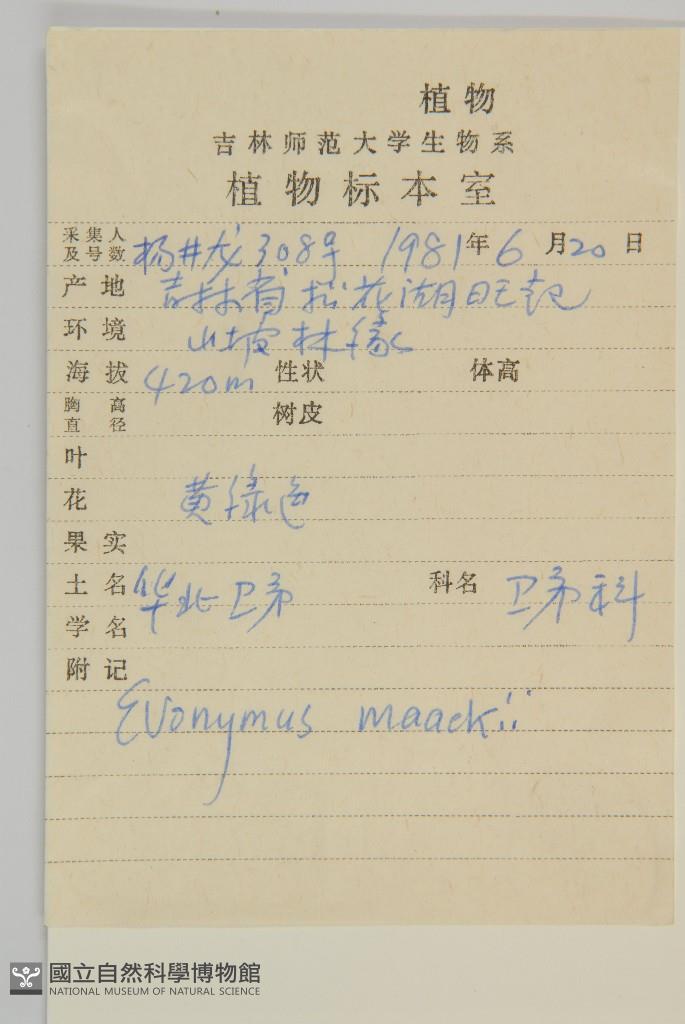 植物
吉林师范大学生物系
植物标本室
采集人及号数 杨井龙 308号 1981年6月20日
产地 吉林省松花湖
环境 山坡林缘
海拔 420m 性状 体高
胸高直径 树皮
叶
花 黄绿色
果实
土名 华北卫矛 科名 卫矛科
学名
附记
Evonymus maackii
國立自然科學博物館
NATIONAL MUSEUM OF NATURAL SCIENCE